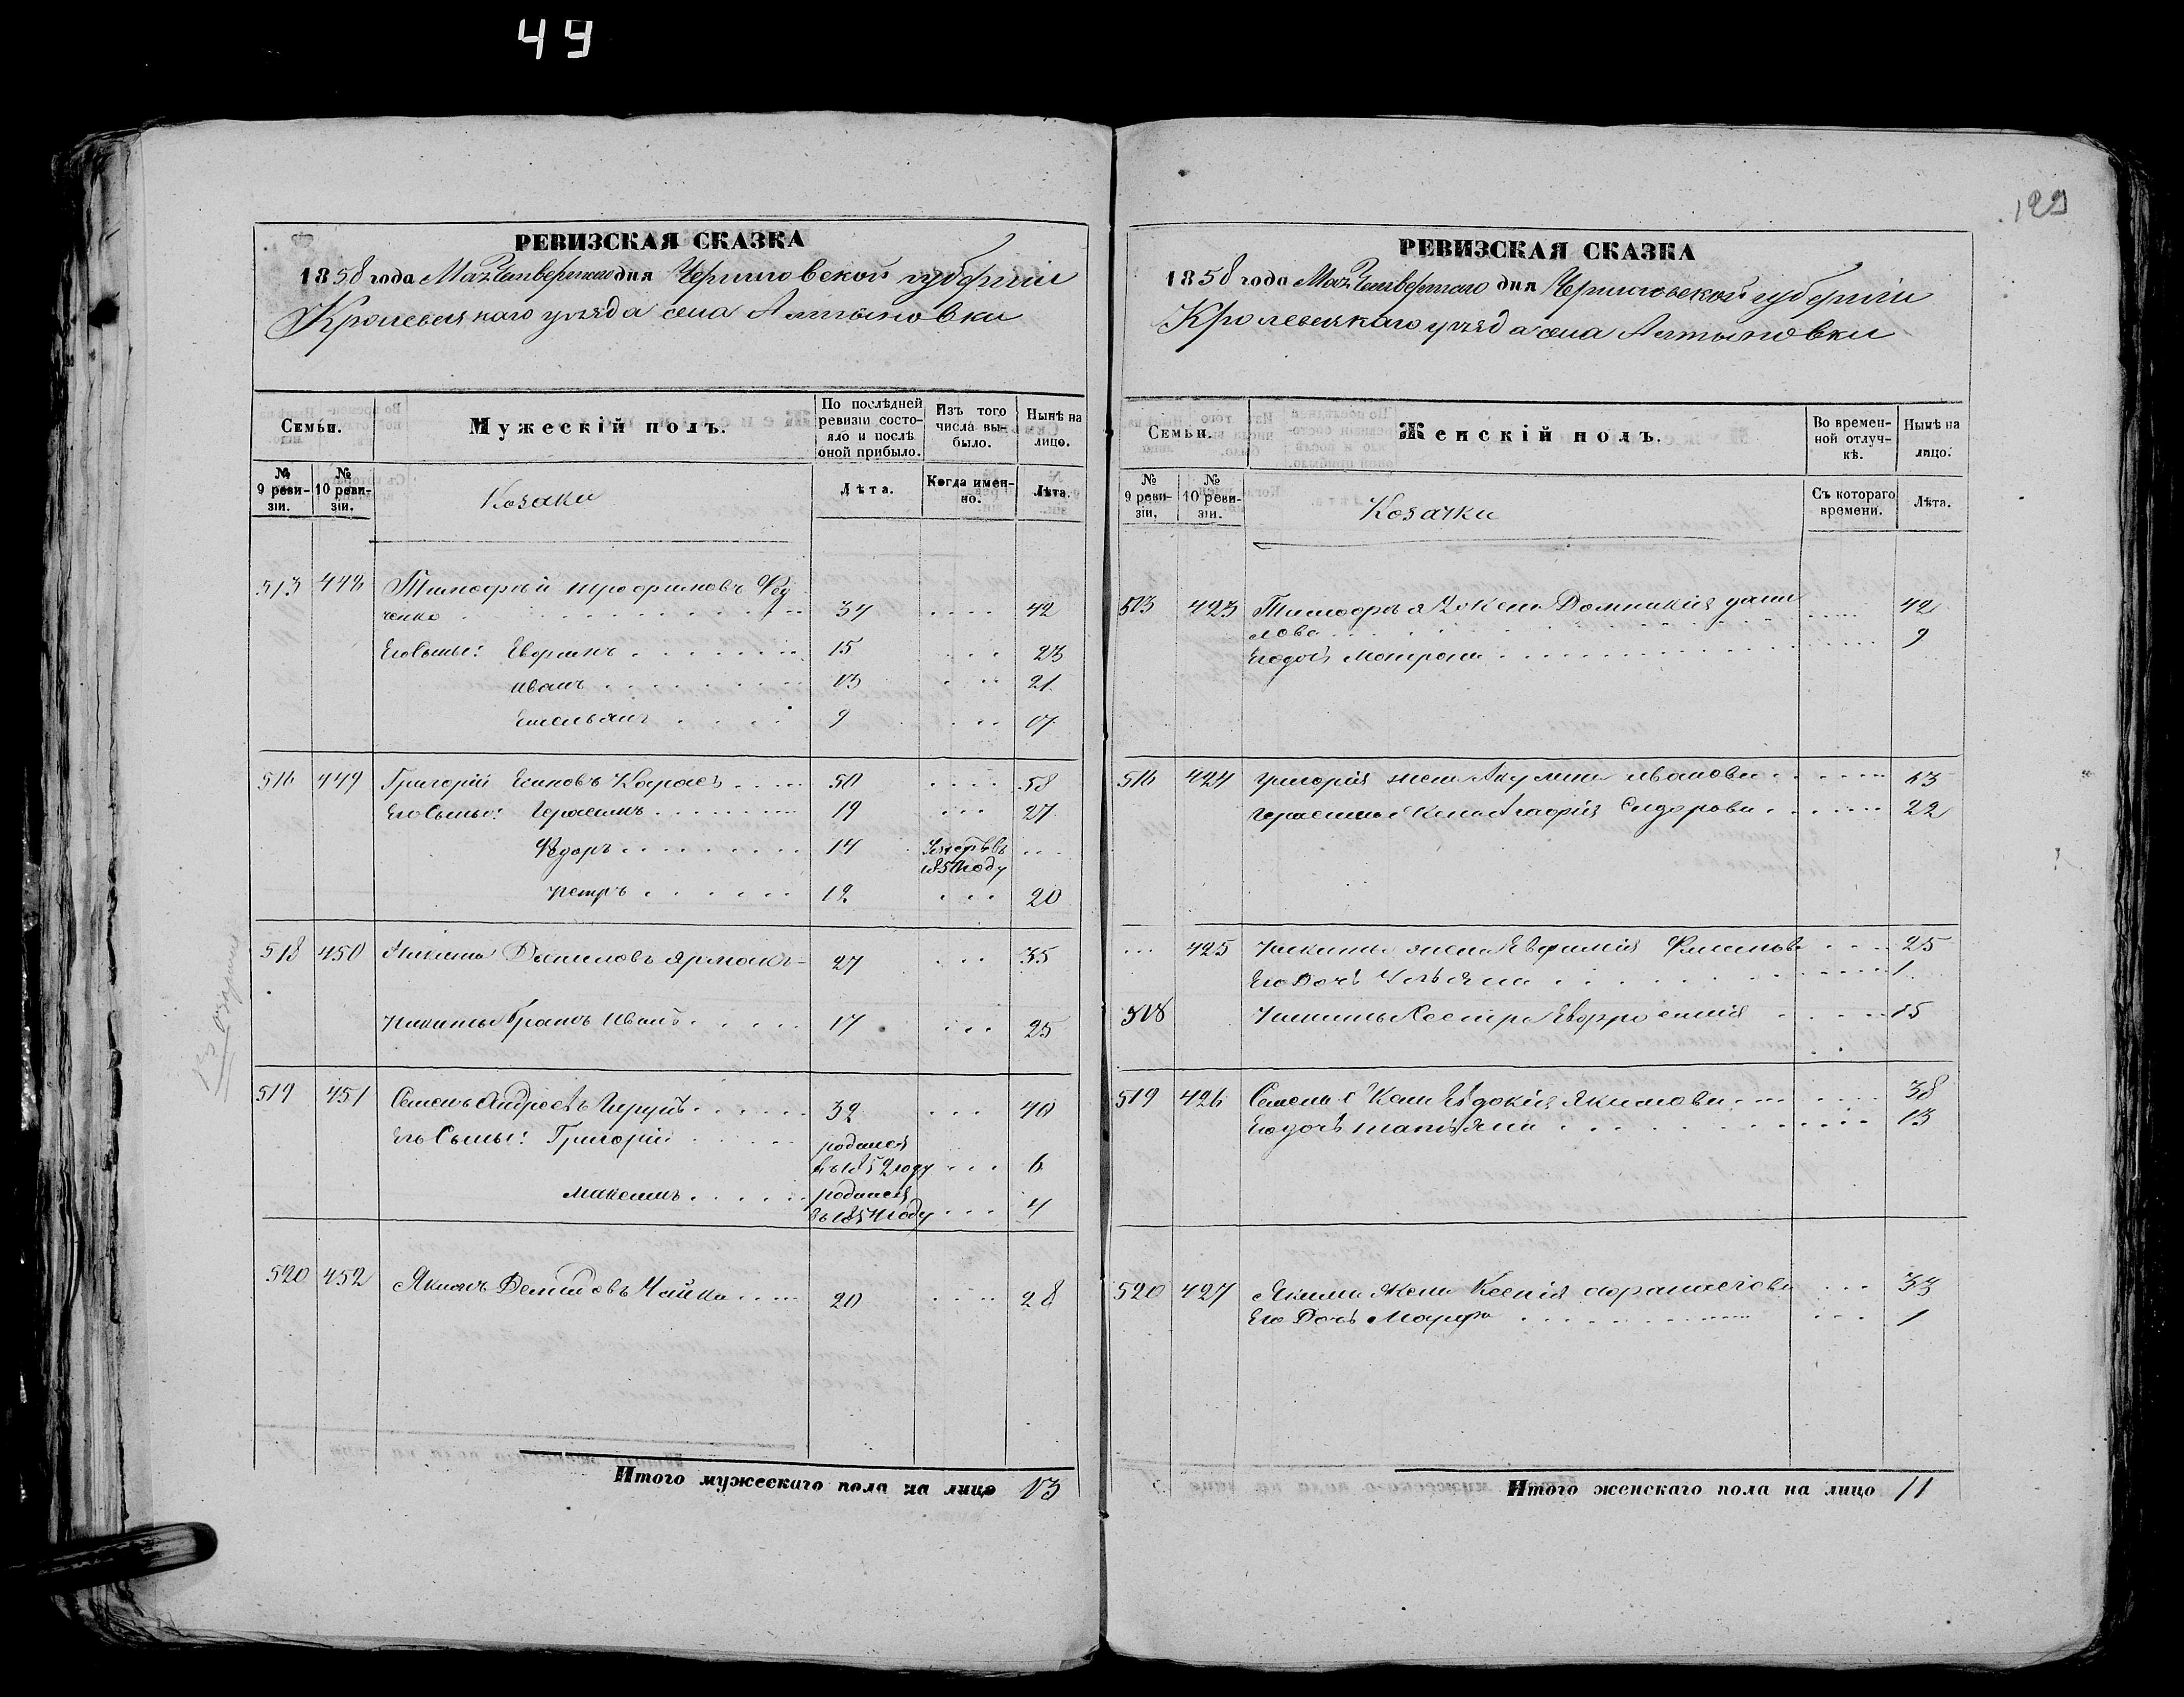 49
129
РЕВИЗСКАЯ СКАЗКА
1858 года Мая Четвертаго дня Черниговской губерніи
Кролевецкаго уѣзда села Алтыновки
Семьи.
Мужескій полъ.
По послѣдней ревизіи состояло и послѣ оной прибыло.
Изъ того числа выбыло.
Нынѣ на лицо.
№ 9 ревизіи.
№ 10 ревизіи.
Козаки
Лѣта.
Когда именно.
Лѣта.
513 448 Тимофѣй Трофимовъ Фед
ченко 34 42
Его Сыны: Ефимъ 15 23
Иванъ 13 21
Емельянъ 9 17
516 449 Григорій Есиповъ 50 58
Его Сыны: Герасимъ 19 27
Федоръ 14 Умеръ въ
году
Петръ 12 20
518 450 Никита Даниловъ Ярмакъ 27 35
Никиты братъ Иванъ 17 25
519 451 Семенъ Андреевъ 32 40
Его Сыны: Григорій родился
въ 1852 году 6
Максимъ родился
въ 1854 году 4
520 452 Якимъ Демидовъ Чайка 20 28
Итого мужескаго пола на лицо 13
РЕВИЗСКАЯ СКАЗКА
1858 года Мая Четвертаго дня Черниговской губерніи
Кролевецкаго уѣзда села Алтыновки
Семьи.
Женскій полъ.
Во временной отлучкѣ.
Нынѣ на лицо.
№ 9 ревизіи.
№ 10 ревизіи.
Козачки
Съ котораго времени.
Лѣта.
513 423 Тимофѣя жена Домникія Дани
лова 42
Его дочь Матрона 9
516 424 Григорія жена Акулина Иванова 53
Герасима жена Агафія Сидорова 22
425 Никиты жена Евфимія 25
Его Дочь Ульяна 1
518 Никиты Сестра Евфросинія 15
519 426 Семена жена Евдокія Якимова 38
Его дочь Татьяна 13
520 427 Якима жена Ксенія Афанасіева 33
Его Дочь Марфа 1
Итого женскаго пола на лицо 11